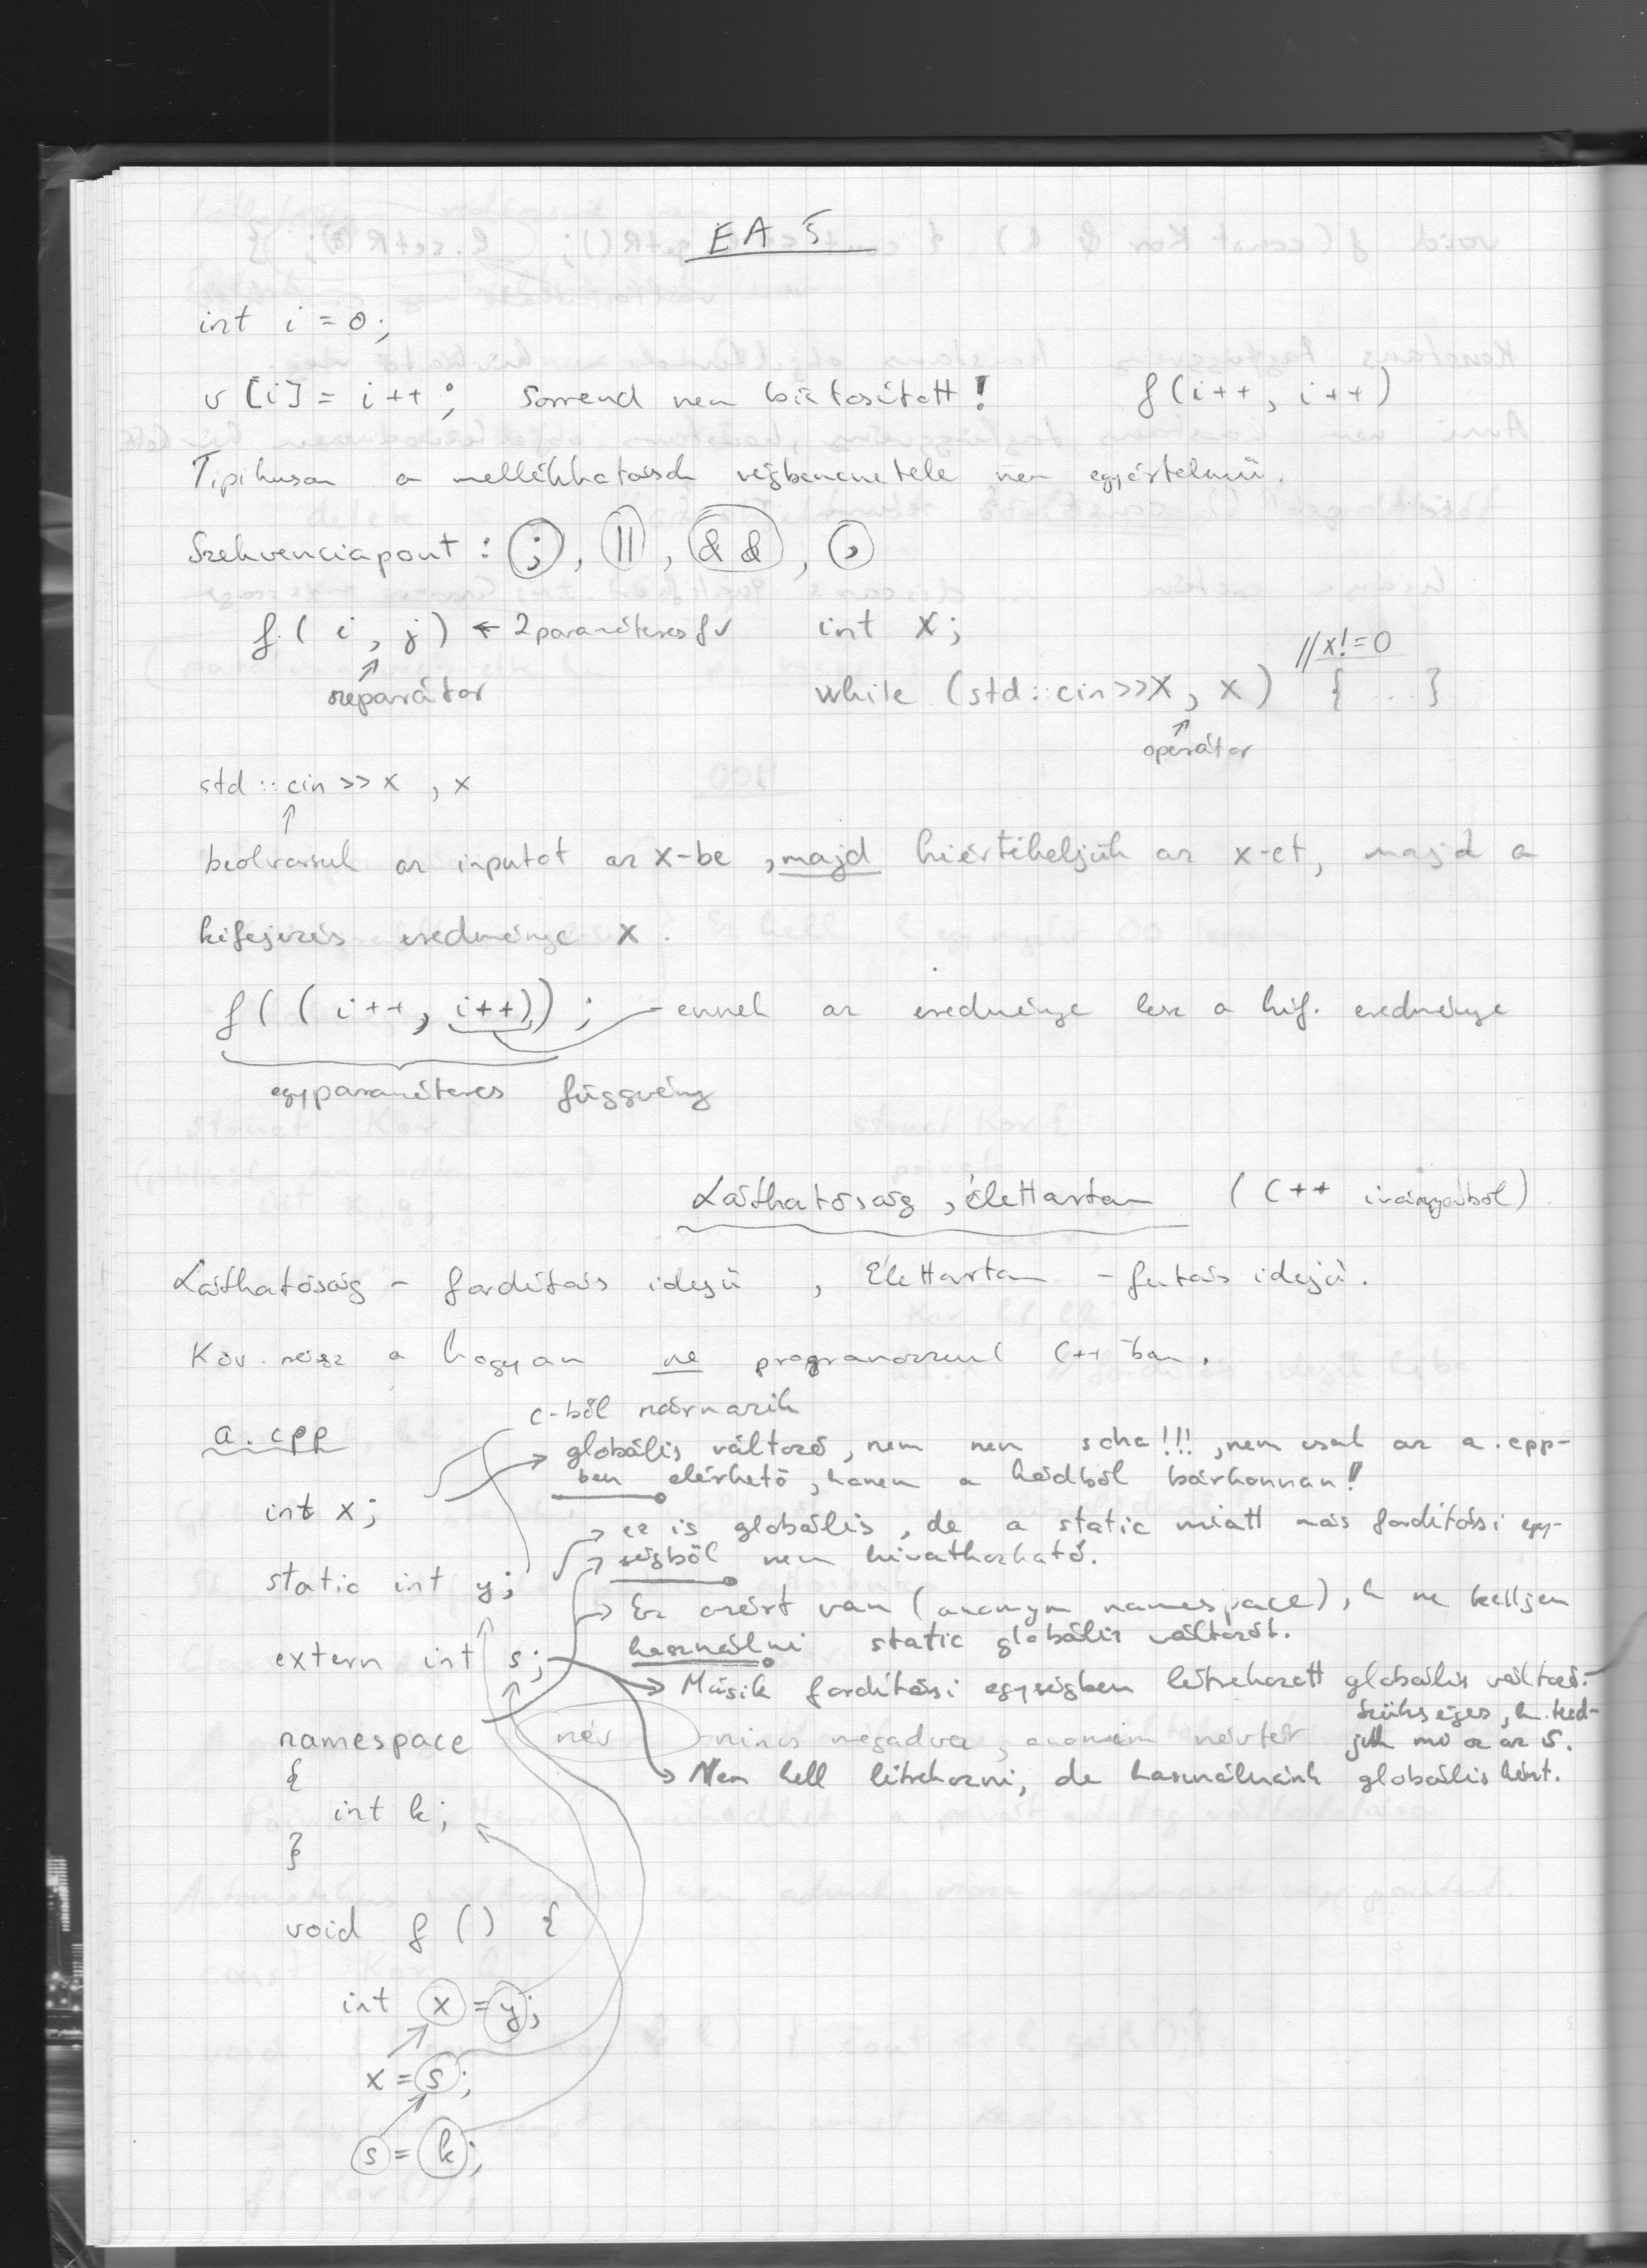 EA 5
int i = 0;
v[i] = i++; Sorrend nem biztosított! f(i++, i++)
Tipikusan a mellékhatások végbemenetele nem egyértelmű.
Szekvenciapont: ; , || , && , ,
f( i , j ) ← 2 paraméteres fv int x;
szeparátor
//x!=0
while (std::cin>>x, x) { ... }
operátor
std::cin >> x , x
beolvasunk az inputot az x-be, majd kiértékeljük az x-et, majd a
kifejezés eredménye x.
f((i++, i++)); ennek az eredménye lesz a kif. eredménye
egyparaméteres függvény
Láthatóság, élettartam (C++ irányából)
Láthatóság - fordítás idejű, Élettartam - futás idejű.
Köv. rész a hogyan ne programozzunk C++-ban.
a.cpp
C-ből származik
globális változó, nem nem soha!!!, nem csak az a.cpp-
ben elérhető, hanem a kódból bárhonnan!
int x;
ez is globális, de a static miatt más fordítási egy-
ségből nem hivatkozható.
static int y;
Ez azért van (anonym namespace), h ne kelljen
használni static globális változót.
extern int s;
Másik fordítási egységben létrehozott globális változó.
Szükséges, h. tud-
juk mi az az s.
namespace név nincs megadva, anonim névtér
Nem kell létrehozni, de használnánk globális ként.
{
int k;
}
void f () {
int x = y;
x = s;
s = k;